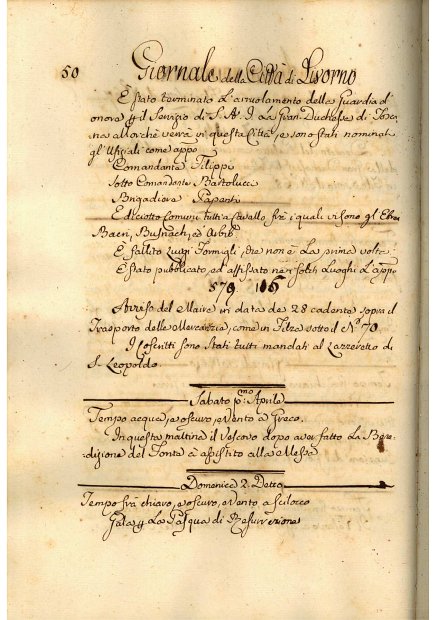 50 Giornale della Città di Livorno
È stato terminato l'arruolamento della Guardia d'
onore p il Servizio di S. A. I. La Gran-Duchessa di Tosca
na allorchè verrà in questa Città, e sono stati nominati
gl'Ufiziali come app.
Comandante Filippi
Sotto Comandante Bartolucci
Brigadiere Papanti
E diciotto Comuni tutti a cavallo frà i quali vi sono gl'Ebrei
Baeri, Busnach, è
È fallito Luigi Formigli, che non è La prima volta.
È stato pubblicato, ed affissato ne' soliti Luoghi L'app.
579 106
Avviso del Maire in data de' 28 cadente sopra il
Trasporto delle Mercanzie, come in Filza sotto il N.° 70.
I Coscritti sono stati tutti mandati al Lazzeretto di
S. Leopoldo
Sabato p.mo Aprile
Tempo acqua, e oscuro, e Vento a Greco.
In questa mattina il Vescovo dopo aver fatto La Bene=
dizione del Fonte à assistito alla Messa
Domenica 2. Detto
Tempo frà chiaro, e oscuro, e Vento a Scilocco
Gala p La Pasqua di Resurrezione